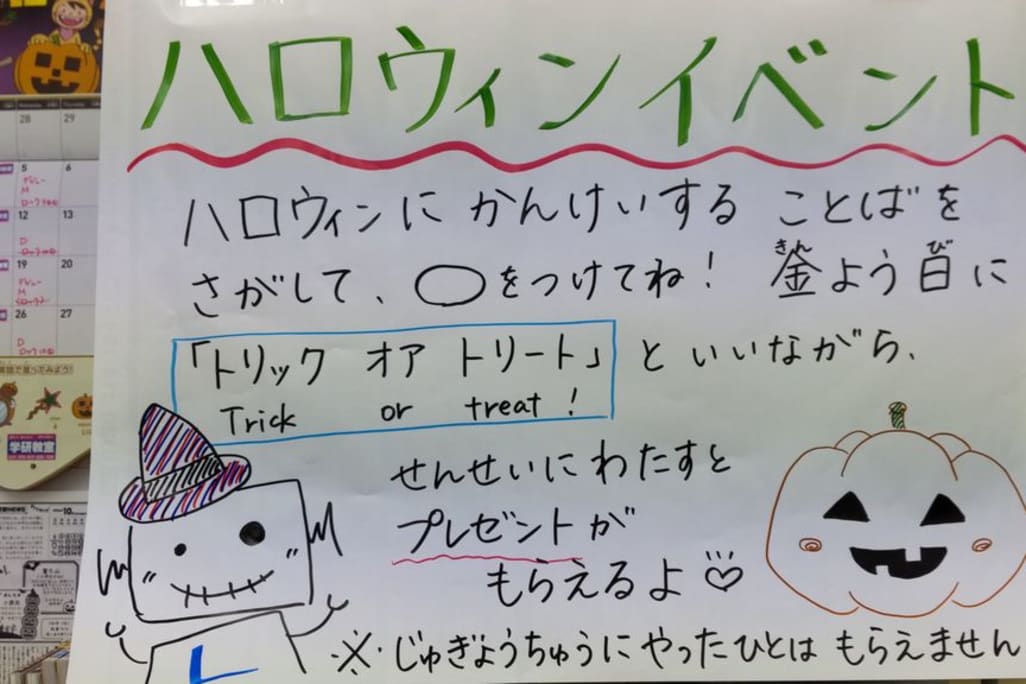 ハロウィンイベント
ハロウィンに かんけいする ことばを
さがして、◯をつけてね! 金よう日に
きん
び
「トリック オア トリート」 といいながら、
Trick or treat!
せんせいにわたすと
プレゼントが
もらえるよ♡
※・じゅぎょうちゅうにやったひとは もらえません
28 29
5 6
12 13
19 20
26 27
学研教室